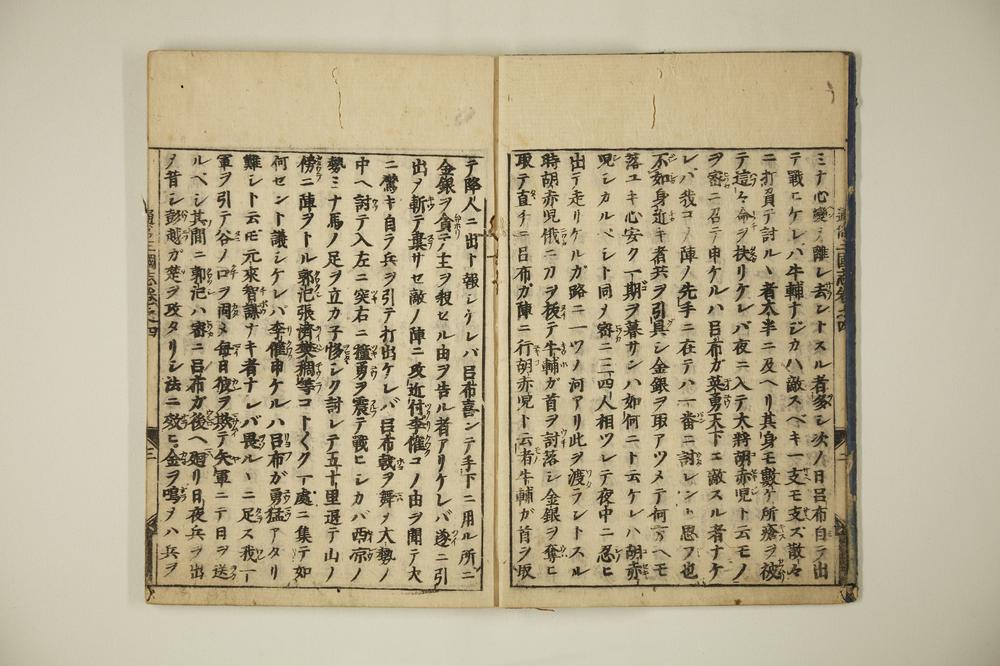 ミナ心變シ離レ去ントスル者多シ次ノ日呂布自ラ出
テ戰ヒケレバ牛輔ナジカハ敵スベキ一支モ支ズ散々
ニ打負テ討ルヽ者大半ニ及ヘリ其身モ數ケ所瘡ヲ被
テ這々命ヲ扶リケレバ夜ニ入テ大將胡赤児ト云モノ
ヲ密ニ召テ申ケルハ呂布ガ英勇天下ニ敵スル者ナケ
レバ我コノ陣ノ先手ニ在テハ一番ニ討レント思フ也
不如身近キ者共ヲ引具シ金銀ヲ取アツメテ何方ヘモ
落ユキ心安ク一期ヲ暮サンハ如何ニト云ケレハ胡赤
児シカルベシト同メ密ニ三四人相ツレテ夜中ニ忍ヒ
出テ走リケルガ路ニ一ツノ河アリ此ヲ渡ラントスル
時胡赤児俄ニ刀ヲ抜テ牛輔ガ首ヲ討落シ金銀ヲ奪ヒ
取テ直チニ呂布ガ陣ニ行胡赤児ト云者牛輔ガ首ヲ取
テ降人ニ出ト報シケレバ呂布喜ンテ手下ニ用ル所ニ
金銀ヲ貪テ主ヲ殺セル由ヲ告ル者アリケレバ遂ニ引
出ヲ斬テ棄サセ敵ノ陣ニ攻近付李傕コノ由ヲ聞テ大
ニ驚キ自ラ兵ヲ引テ打出ケレバ呂布戟ヲ舞メ大勢ノ
中ヘ討テ入左ニ突右ニ撞勇ヲ震テ戰ヒシカバ西凉ノ
勢ミナ馬ノ足ヲ立カ子夥シク討レテ五十里退テ山ノ
傍ニ陣ヲトル郭汜張濟樊稠等コトヾク一處ニ集テ如
何セント議シケレバ李傕申ケルハ呂布ガ勇猛アタリ
難シト云モ元來智謀ナキ者ナレバ畏ルヽニ足ス我一
軍ヲ引テ谷ノ口ヲ固メ毎日彼ヲ欺テ矢軍ニテ日ヲ送
ルベシ其間ニ郭汜ハ密ニ呂布ガ後ヘ廻リ日夜兵ヲ出
メ昔シ彭越ガ楚ヲ攻タリシ法ニ效ヒ金ヲ鳴メハ兵ヲ